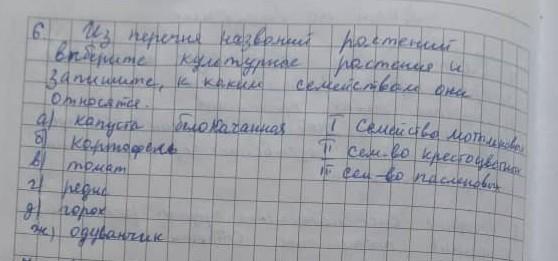 6. Из перечня названий растений
выберите культурное растения и
запишите, к каким семействам они
относятся.
а) капуста белокочанная I Семейство мотыльковых
б) картофель II сем-во крестоцветных
в) томат III сем-во пасленовых
г) редис
д) горох
ж) одуванчик